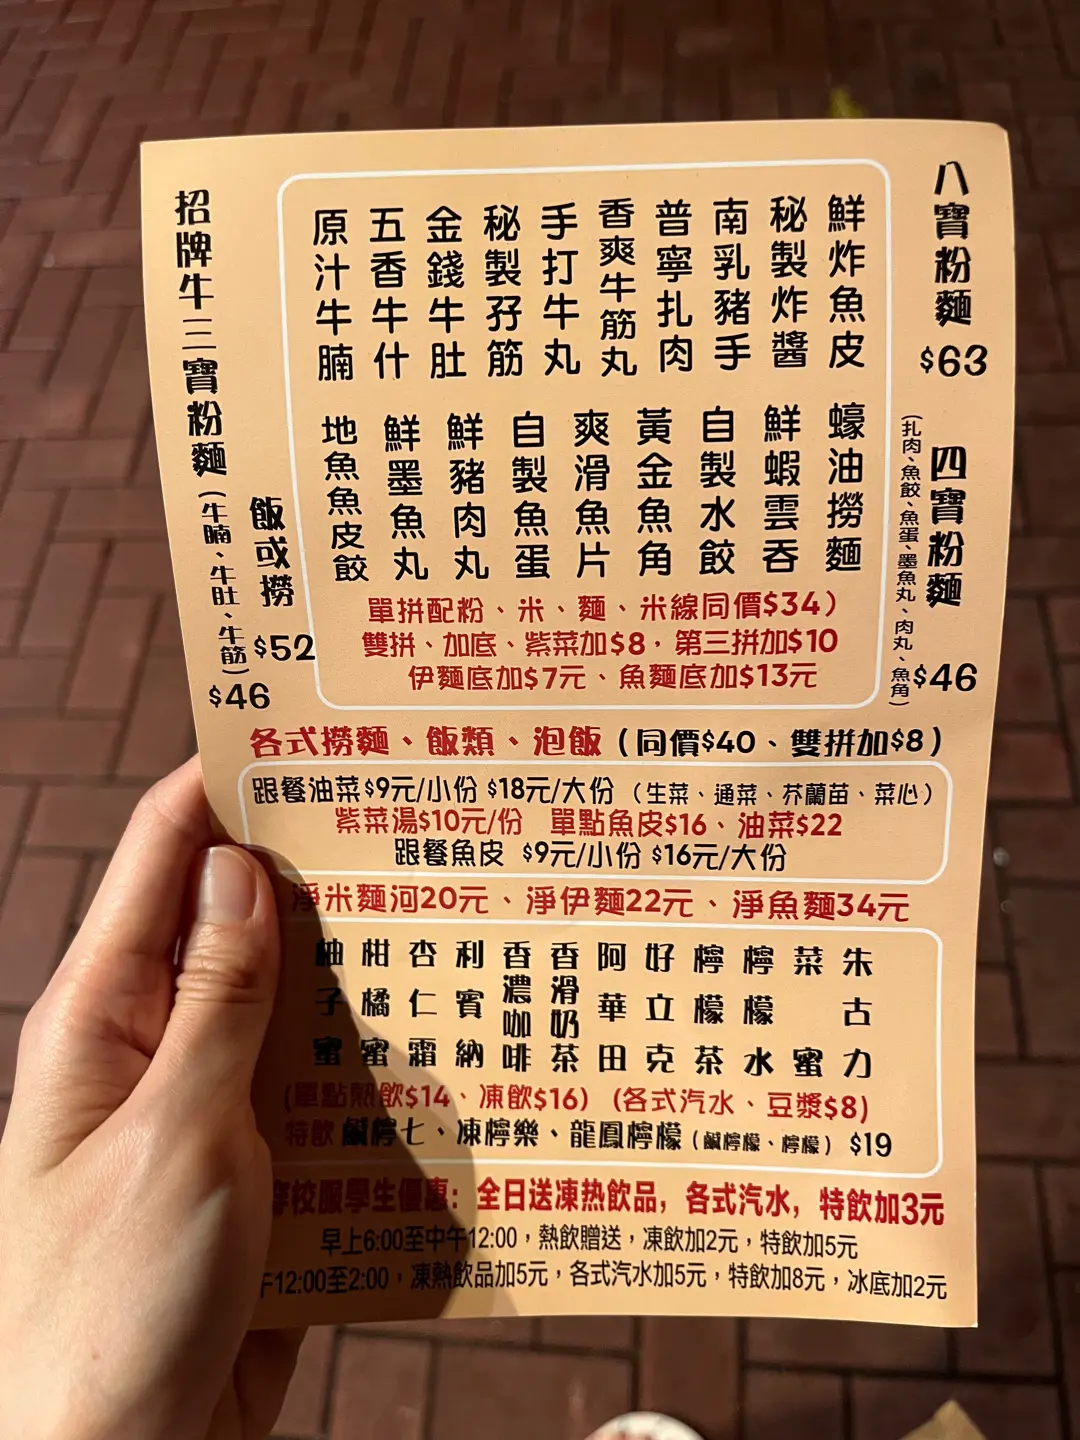 八寶粉麵
$63
四寶粉麵
(扎肉、魚餃、魚蛋、墨魚丸、肉丸、魚角)
$46
鮮炸魚皮
秘製炸醬
南乳豬手
普寧扎肉
香爽牛筋丸
手打牛丸
秘製孖筋
金錢牛肚
五香牛什
原汁牛腩
蠔油撈麵
鮮蝦雲吞
自製水餃
黃金魚角
爽滑魚片
自製魚蛋
鮮豬肉丸
鮮墨魚丸
地魚魚皮餃
單拼配粉、米、麵、米線同價$34)
雙拼、加底、紫菜加$8，第三拼加$10
伊麵底加$7元、魚麵底加$13元
招牌牛三寶粉麵(牛腩、牛肚、牛筋)
$46
飯或撈
$52
各式撈麵、飯類、泡飯(同價$40、雙拼加$8)
跟餐油菜$9元/小份 $18元/大份 (生菜、通菜、芥蘭苗、菜心)
紫菜湯$10元/份 單點魚皮$16、油菜$22
跟餐魚皮 $9元/小份 $16元/大份
淨米麵河20元、淨伊麵22元、淨魚麵34元
朱古力
菜蜜
檸檬水
檸檬茶
好立克
阿華田
香滑奶茶
香濃咖啡
利賓納
杏仁霜
柑橘蜜
柚子蜜
(單點熱飲$14、凍飲$16) (各式汽水、豆漿$8)
特飲 鹹檸七、凍檸樂、龍鳳檸檬(鹹檸檬、檸檬) $19
穿校服學生優惠：全日送凍热飲品，各式汽水，特飲加3元
早上6:00至中午12:00，熱飲贈送，凍飲加2元，特飲加5元
12:00至2:00，凍熱飲品加5元，各式汽水加5元，特飲加8元，冰底加2元